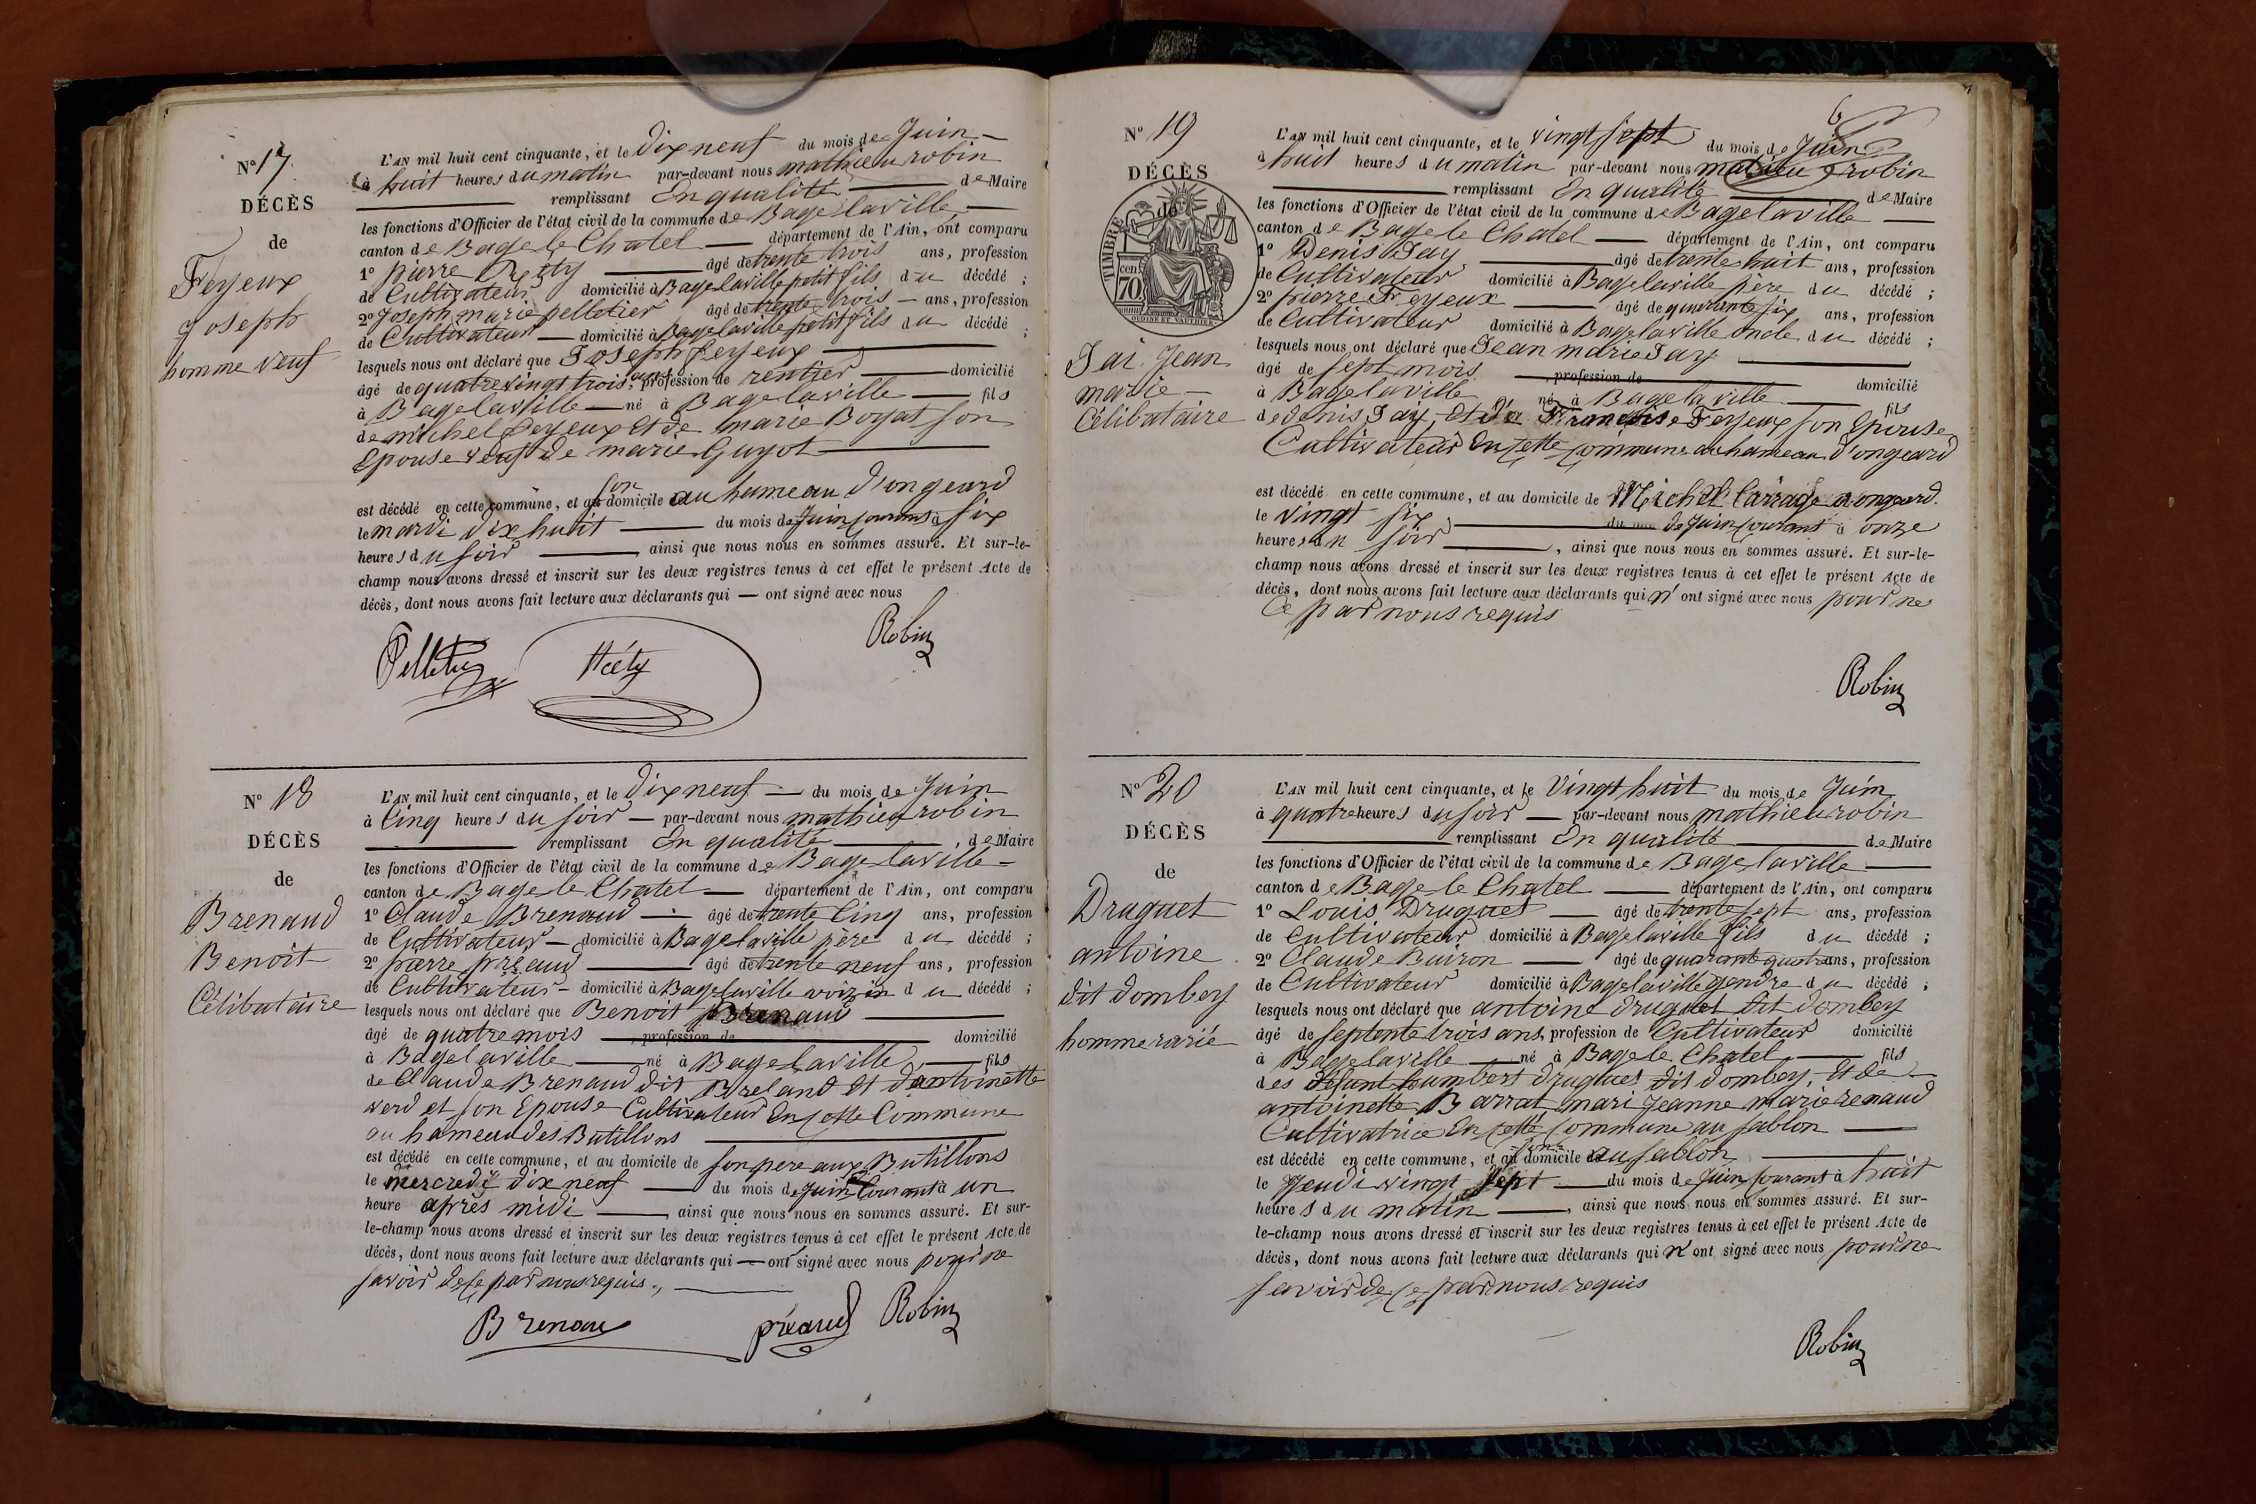 N° 17
DÉCÈS
de
Feyeux
joseph
homme veuf
L'AN mil huit cent cinquante, et le dix neuf du mois de Juin
à huit heures du matin par-devant nous mathieu robin
remplissant En qualité de Maire
les fonctions d'Officier de l'état civil de la commune de Bagelaville
canton de Bage le Chatel département de l'Ain, ont comparu
1° pierre âgé de trente trois ans, profession
de Cultivateur domicilié à Bagelaville petit fils du décédé ;
2° Joseph marie pelletier âgé de trente trois ans, profession
de Cultivateur domicilié à Bagelaville petit fils du décédé ;
lesquels nous ont déclaré que Joseph feyeux
âgé de quatre vingt trois ans profession de rentier domicilié
à Bagelaville né à Bagelaville fils
de michel feyeux et de marie Boyat son
Epouse veuf de marie Guyot
est décédé en cette commune, et au son domicile au hameau d'ongeard
le mardi dix huit du mois de Juin courant à six
heures du soir , ainsi que nous nous en sommes assuré. Et sur-le-
champ nous avons dressé et inscrit sur les deux registres tenus à cet effet le présent Acte de
décès, dont nous avons fait lecture aux déclarants qui — ont signé avec nous
Robin
N° 18
DÉCÈS
de
Brenaud
Benoit
Célibataire
L'AN mil huit cent cinquante, et le dix neuf du mois de Juin
à Cinq heures du soir par-devant nous mathieu robin
remplissant En qualité , de Maire
les fonctions d'Officier de l'état civil de la commune de Bage laville
canton de Bage le Chatel département de l'Ain, ont comparu
1° Claude Brenaud âgé de trente Cinq ans, profession
de Cultivateur domicilié à Bagelaville père du décédé ;
2° pierre préaud âgé de trente neuf ans, profession
de Cultivateur domicilié à Bagelaville voizin du décédé ;
lesquels nous ont déclaré que Benoit Brenaud
âgé de quatre mois , profession de domicilié
à Bagelaville né à Bagelaville fils
de Claude Brenaud dit Breland et d'antoinette
verd et son Epouse Cultivateur En cette Commune
au hameau des Butillons
est décédé en cette commune, et au domicile de son pere aux Butillons
le mercredi dix neuf du mois de Juin Courant à un
heure après midi , ainsi que nous nous en sommes assuré. Et sur-
le-champ nous avons dressé et inscrit sur les deux registres tenus à cet effet le présent Acte de
décès, dont nous avons fait lecture aux déclarants qui — ont signé avec nous pour ne
savoir de ce par nous requis
Brenau préaud Robin
6
N° 19
DÉCÈS
de
TIMBRE
70 cen
Jai Jean
marie
Célibataire
L'AN mil huit cent cinquante, et le vingt sept du mois de Juin
à huit heures du matin par-devant nous matieu robin
remplissant En qualité de Maire
les fonctions d'Officier de l'état civil de la commune de Bagelaville
canton de Bage le Chatel département de l'Ain, ont comparu
1° Denis Jay âgé de trente huit ans, profession
de Cultivateur domicilié à Bagelaville père du décédé ;
2° pierre Feyeux âgé de quarante six ans, profession
de Cultivateur domicilié à Bagelaville oncle du décédé ;
lesquels nous ont déclaré que Jean marie Jay
âgé de sept mois , profession de domicilié
à Bagelaville né à Bagelaville fils
de denis Jay, Et de Françoise Feyeux son Epouse
Cultivateur En cette commune au hameau d'ongeard
est décédé en cette commune, et au domicile de Michel d'ongeard.
le vingt six du mois de Juin courant à onze
heures du soir , ainsi que nous nous en sommes assuré. Et sur-le-
champ nous avons dressé et inscrit sur les deux registres tenus à cet effet le présent Acte de
décès, dont nous avons fait lecture aux déclarants qui n'ont signé avec nous pour ne
Ce par nous requis
Robin
N° 20
DÉCÈS
de
Druguet
antoine
dit dombey
homme marié
L'AN mil huit cent cinquante, et le Vingt huit du mois de Juin
à quatre heures du soir par-devant nous mathieu robin
remplissant En qualité de Maire
les fonctions d'Officier de l'état civil de la commune de Bagelaville
canton de Bage le Chatel département de l'Ain, ont comparu
1° Louis Druguet âgé de trente sept ans, profession
de cultivateur domicilié à Bagelaville fils du décédé ;
2° Claude Buiron âgé de quarante quatre ans, profession
de Cultivateur domicilié à Bagelaville gendre du décédé ;
lesquels nous ont déclaré que antoine druguet dit dombey
âgé de septente trois ans, profession de Cultivateur domicilié
à Bagelaville né à Bage le Chatel fils
des défunt humbert druguet dit dombey, Et de
antoinette Barrat, mari Jeanne marie renaud
Cultivatrice En cette commune au sablon
est décédé en cette commune, et au son domicile au sablon
le Jeudi vingt sept du mois de Juin courant à huit
heures du matin , ainsi que nous nous en sommes assuré. Et sur-
le-champ nous avons dressé et inscrit sur les deux registres tenus à cet effet le présent Acte de
décès, dont nous avons fait lecture aux déclarants qui n'ont signé avec nous pour ne
savoir de ce par nous requis
Robin